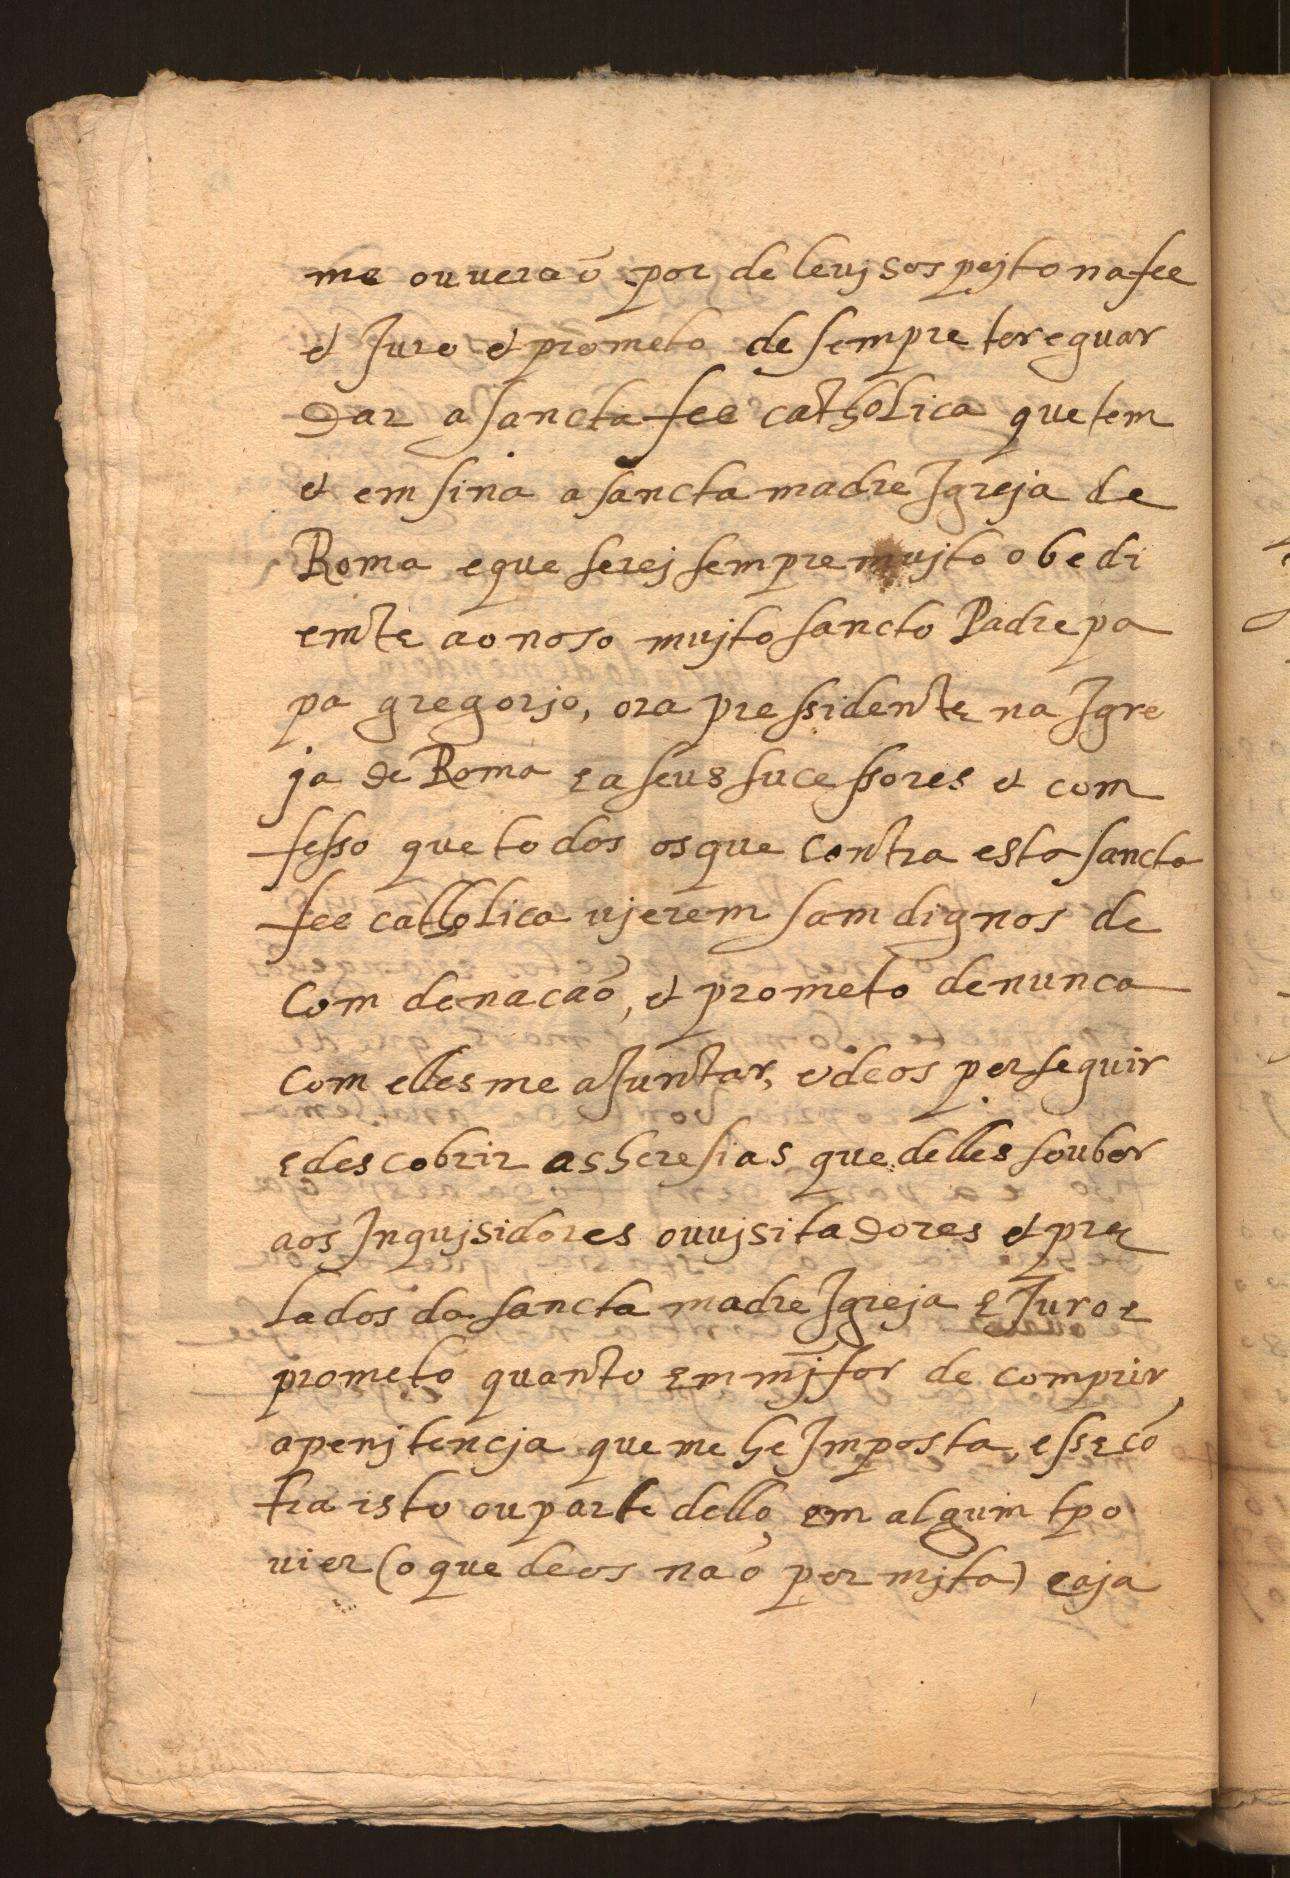 me ouveraõ por de levj sospejto na fee
et Juro et prometo de sempre ter e guar
dar a sancta fee catholica que tem
et emsina a sancta madre Igreja de
Roma e que serej sempre mujto obedi
emte ao noso mujto sancto Padre pa
pa gregorjo, ora pressidente na Igre
ja de Roma e a seus sucessores et com
fesso que todos os que contra esta sancta
fee catholica vjerem sam dignos de
comdenacaõ, et prometo de nunca
com elles me aJuntar, e de os perseguir
e descobrir as heresias que delles souber
aos Inqujsidores ou vjsitadores et pre
lados da sancta madre Igreja e Juro e
prometo quanto em mj for de comprir
a penjtencja que me he Imposta, e sse cõ
tra isto ou parte dello em algum tpo
vier (o que deos naõ permjta) caja